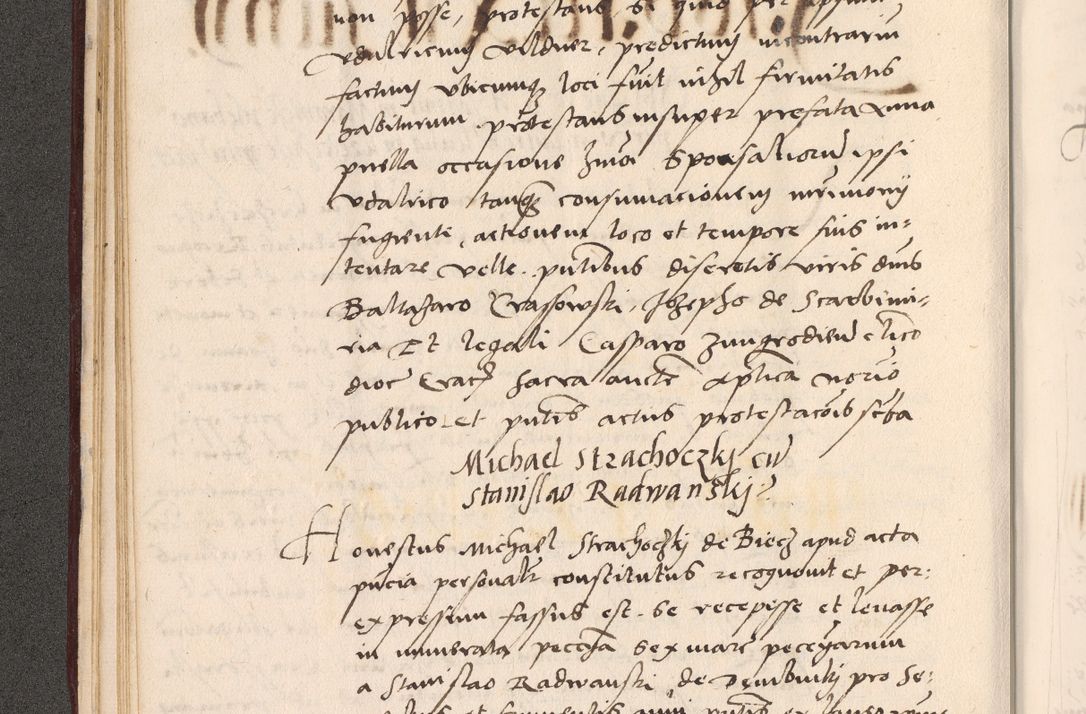 non posse, protestans si quid per ipsum
Vdalricum Vildner, predictum in contrarium
factum vbicumq loci fuit nihil firmitatis
habiturum protestans insuper prefata Anna
puella occasione sponsaliorum ipsi
Vdalrico tanq consumacionem mrimonij
fugiente, actionem loco et tempore suis in-
tentare velle. pntibus discretis viris dnis
Baltasaro Crassowski, Josepho de Scarbimi-
ria Et legali Casparo clico
dioc Crac sacra aucte Aplica norio
publico et pntis actus protestacois scba
Michael Strachoczkj cu
Stanislao Radwanskj
Honestus Michael Strachoczkj de Biecz apud acta
pncia personalr constitutus recognouit et per
expressum fassus est. se recepisse et leuasse
in numerata peccunia sex marc peccuniarum
a Stanislao Radwanski de pro se-